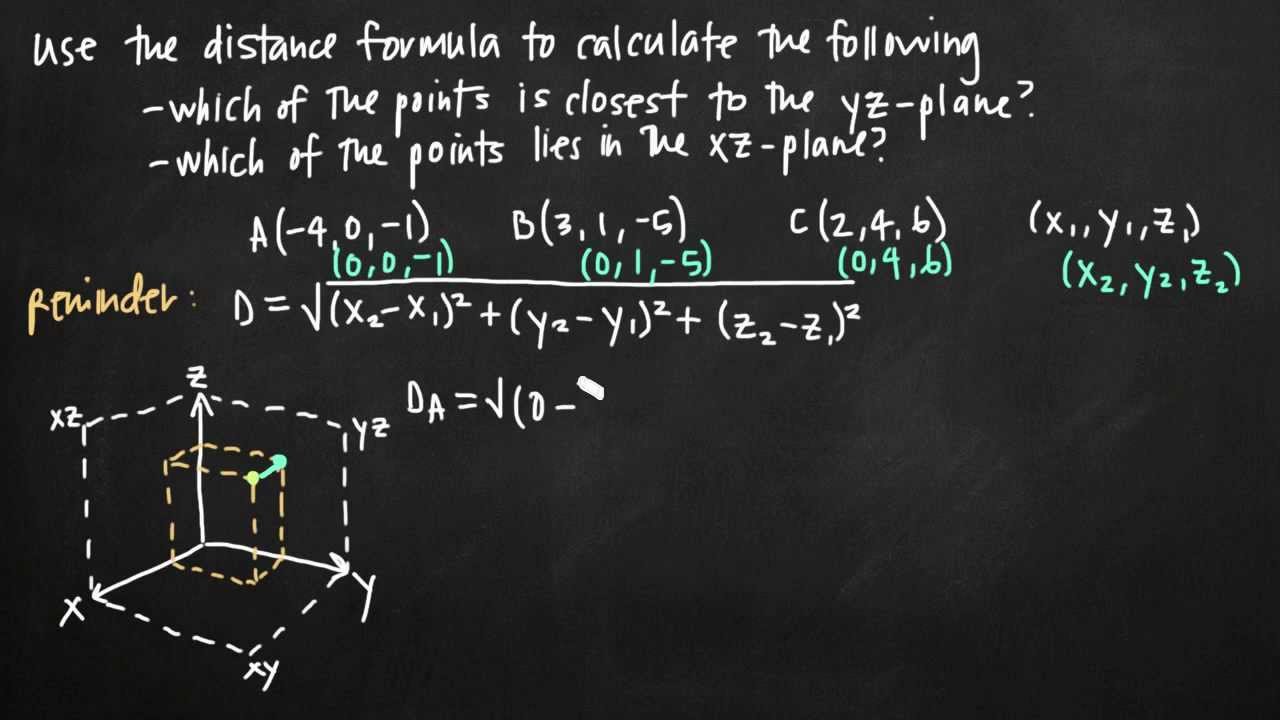 use the distance formula to calculate the following
- which of the points is closest to the yz-plane?
- which of the points lies in the xz-plane?
A(-4,0,-1) B(3,1,-5) C(2,4,6) (x₁,y₁,z₁)
(0,0,-1) (0,1,-5) (0,4,6) (x₂,y₂,z₂)
reminder: D = √(x₂-x₁)² + (y₂-y₁)² + (z₂-z₁)²
z
xz yz
D_A = √(0 -
x y
xy